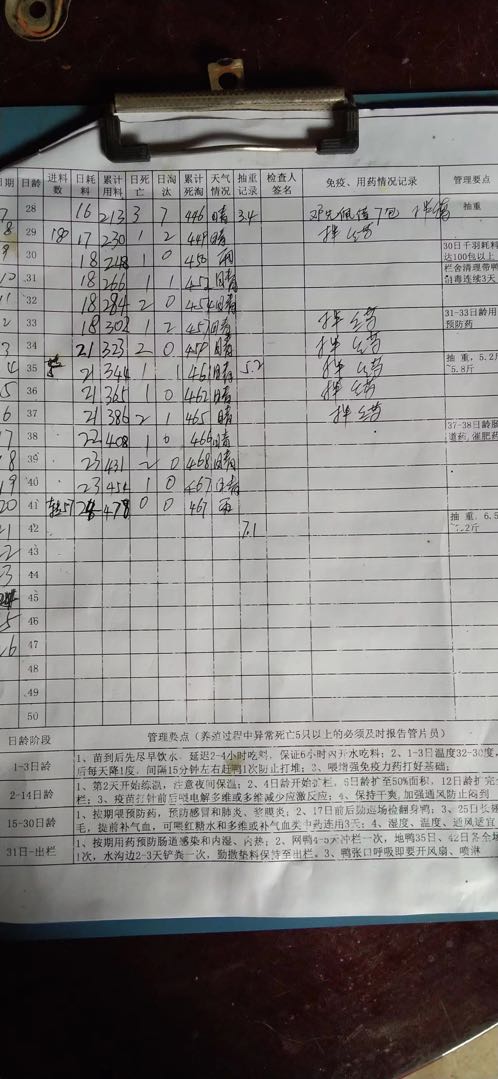 日期 日龄 进料数 日耗料 累计用料 日死亡 日淘汰 累计死淘 天气情况 抽重记录 检查人签名 免疫、用药情况记录 管理要点
7 28 16 213 3 7 446 晴 3.4 抽重
8 29 180 17 230 1 2 449 晴
9 30 18 248 1 0 450 雨 30日千羽耗料达100包以上
10 31 18 266 1 1 452 晴 栏舍清理带鸭消毒连续3天
11 32 18 284 2 0 454 晴
2 33 18 302 1 2 457 晴 31-33日龄用预防药
3 34 21 323 2 0 459 晴
4 35 21 344 1 1 461 晴 5.2 抽重，5.2斤~5.8斤
5 36 21 365 1 0 462 晴
6 37 21 386 2 1 465 晴
17 38 22 408 1 0 466 晴 37-38日龄肠道药,催肥药
18 39 23 431 2 0 468 晴
19 40 23 454 1 0 467 晴
20 41 478 0 0 467 雨
21 42 7.1 抽重，6.5~7.2斤
22 43
23 44
45
25 46
26 47
48
49
50
日龄阶段 管理要点（养殖过程中异常死亡5只以上的必须及时报告管片员）
1-3日龄 1、苗到后先尽早饮水，延迟2-4小时吃料，保证6小时内开水吃料；2、1-3日温度32-30度，
后每天降1度，间隔15分钟左右赶鸭1次防止打堆；3、喂增强免疫力药打好基础；
2-14日龄 1、第2天开始练温，注意夜间保温；2、4日龄开始扩栏，6日龄扩至50%面积，12日龄扩完全
栏；3、疫苗打针前后喂电解多维或多维减少应激反应；4、保持干爽，加强通风防止闷到
15-30日龄 1、按期喂预防药，预防感冒和肺炎、浆膜炎；2、17日前后勤巡场捡翻身鸭；3、25日长领
毛，提前补气血，可喂红糖水和多维或补气血类中药连用3天；4、湿度、温度、通风适宜
31日-出栏 1、按期用药预防肠道感染和内湿、内热；2、网鸭4-5天冲栏一次，地鸭35日、42日各全场
1次，水沟边2-3天铲粪一次，勤撒垫料保持至出栏。3、鸭张口呼吸即要开风扇、喷淋